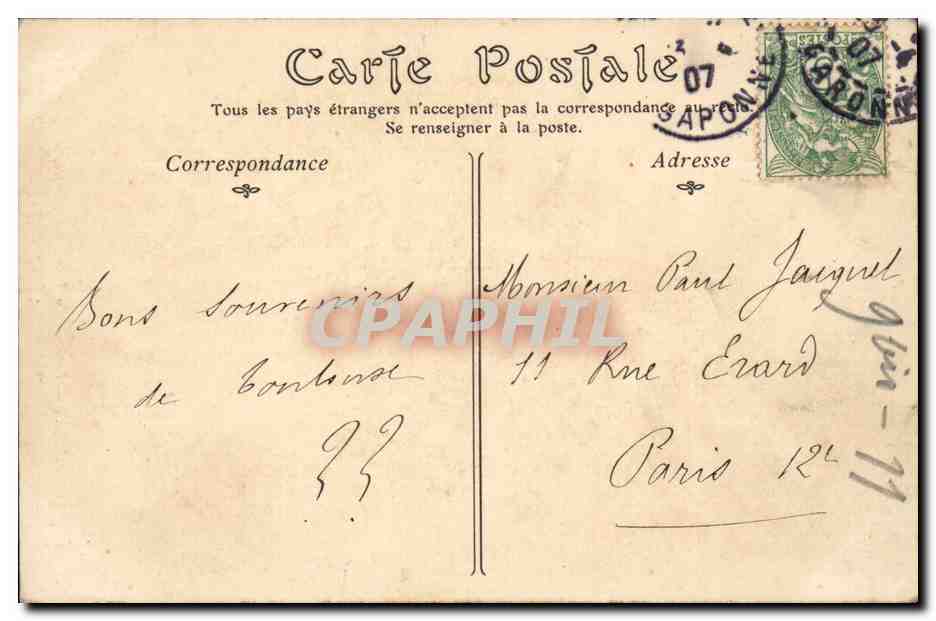 Carte Postale
Tous les pays étrangers n'acceptent pas la correspondance au recto.
Se renseigner à la poste.
Correspondance
Adresse
2
07
GARONNE
POSTES
07
GARONNE
Bons souvenirs
de Toulouse
??
Monsieur Paul Jacquet
11 Rue Erard
Paris 12e
CPAPHIL